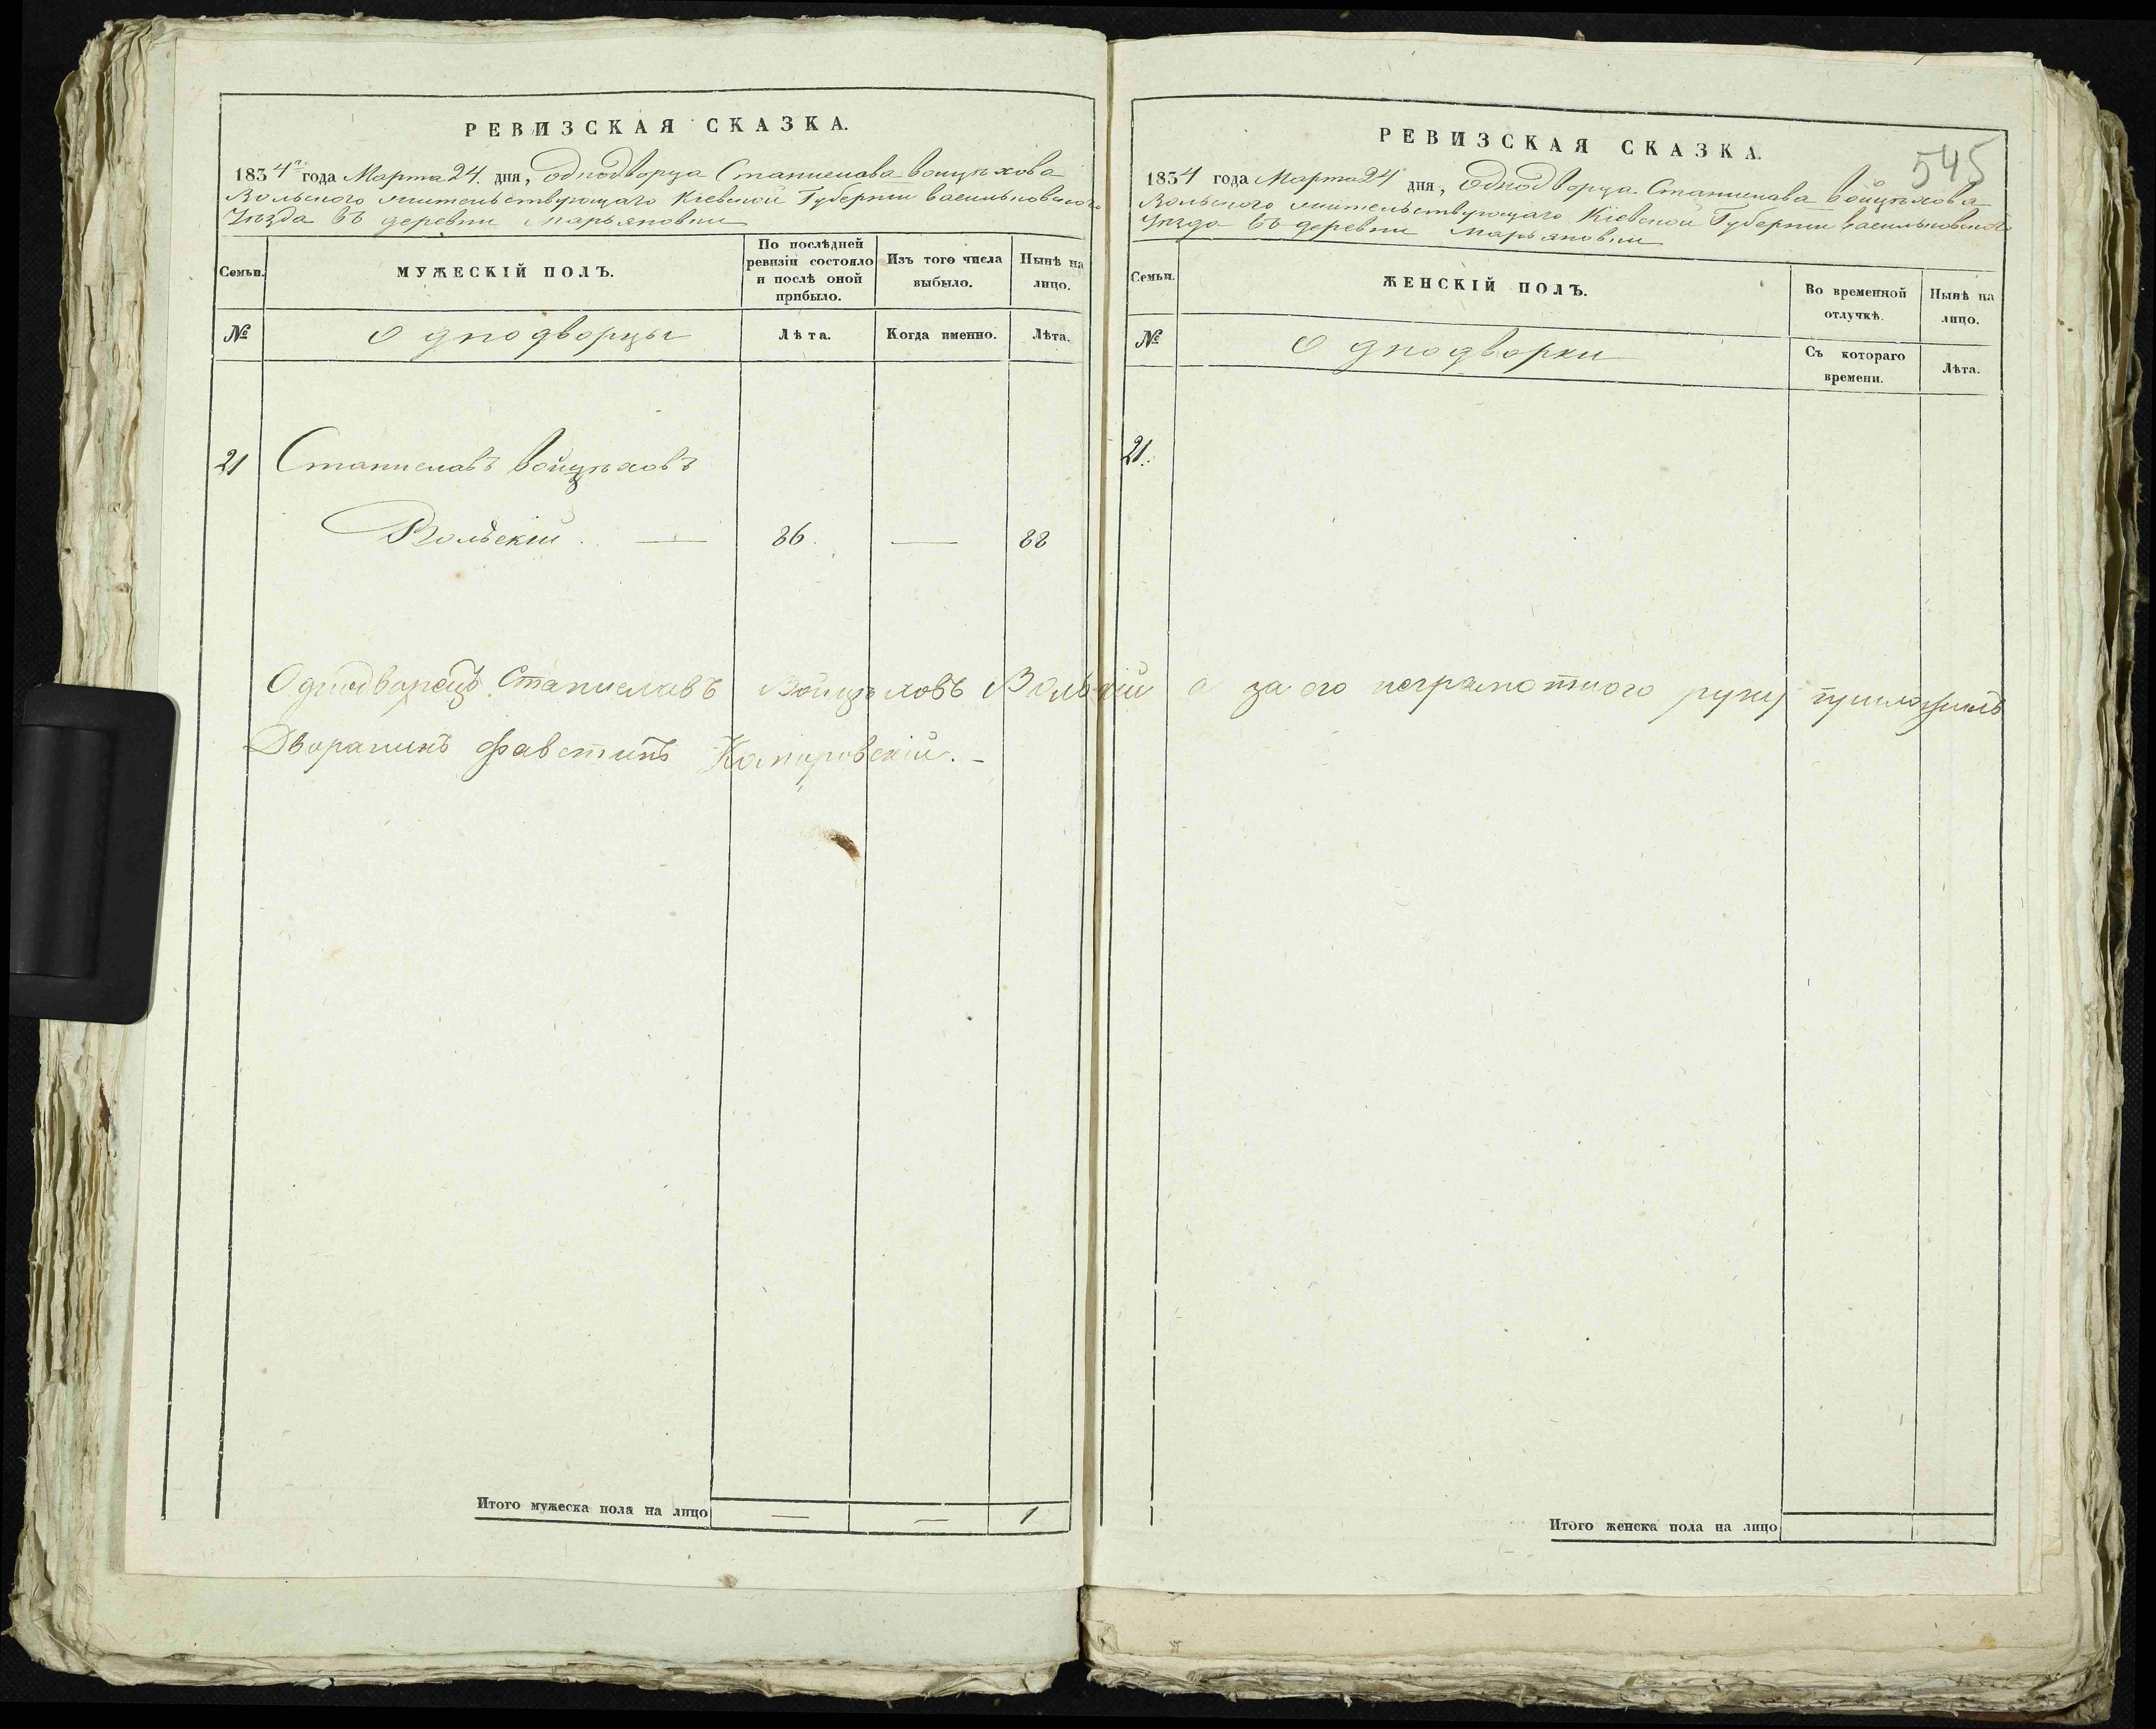 РЕВИЗСКАЯ СКАЗКА.
1834 года Марта 24. дня, Однодворца Станислава Войцѣхова
Вольского жительствующаго Кіевской Губерніи Васильковского
Уѣзда въ деревни Марьяновки
Семьи.
МУЖЕСКІЙ ПОЛЪ.
По послѣдней ревизіи состояло и послѣ оной прибыло.
Изъ того числа выбыло.
Нынѣ на лицо.
№
Однодворцы
Лѣта.
Когда именно.
Лѣта.
21 Станиславъ Войцѣховъ
Вольскій. — 86. — 88
Однодворецъ Станиславъ Войцѣховъ Вольскій а за его неграмотного руку приложилъ
Дворанинъ Фавстинъ
Итого мужеска пола на лицо — — 1
545
РЕВИЗСКАЯ СКАЗКА.
1834 года Марта 24 дня, Однодворца Станислава Войцѣхова
Вольского жительствующаго Кіевской Губерніи Васильковского
Уѣзда въ деревни Марьяновки
Семьи.
ЖЕНСКІЙ ПОЛЪ.
Во временной отлучкѣ.
Нынѣ на лицо.
№
Однодворки
Съ котораго времени.
Лѣта.
21.
Итого женска пола на лицо